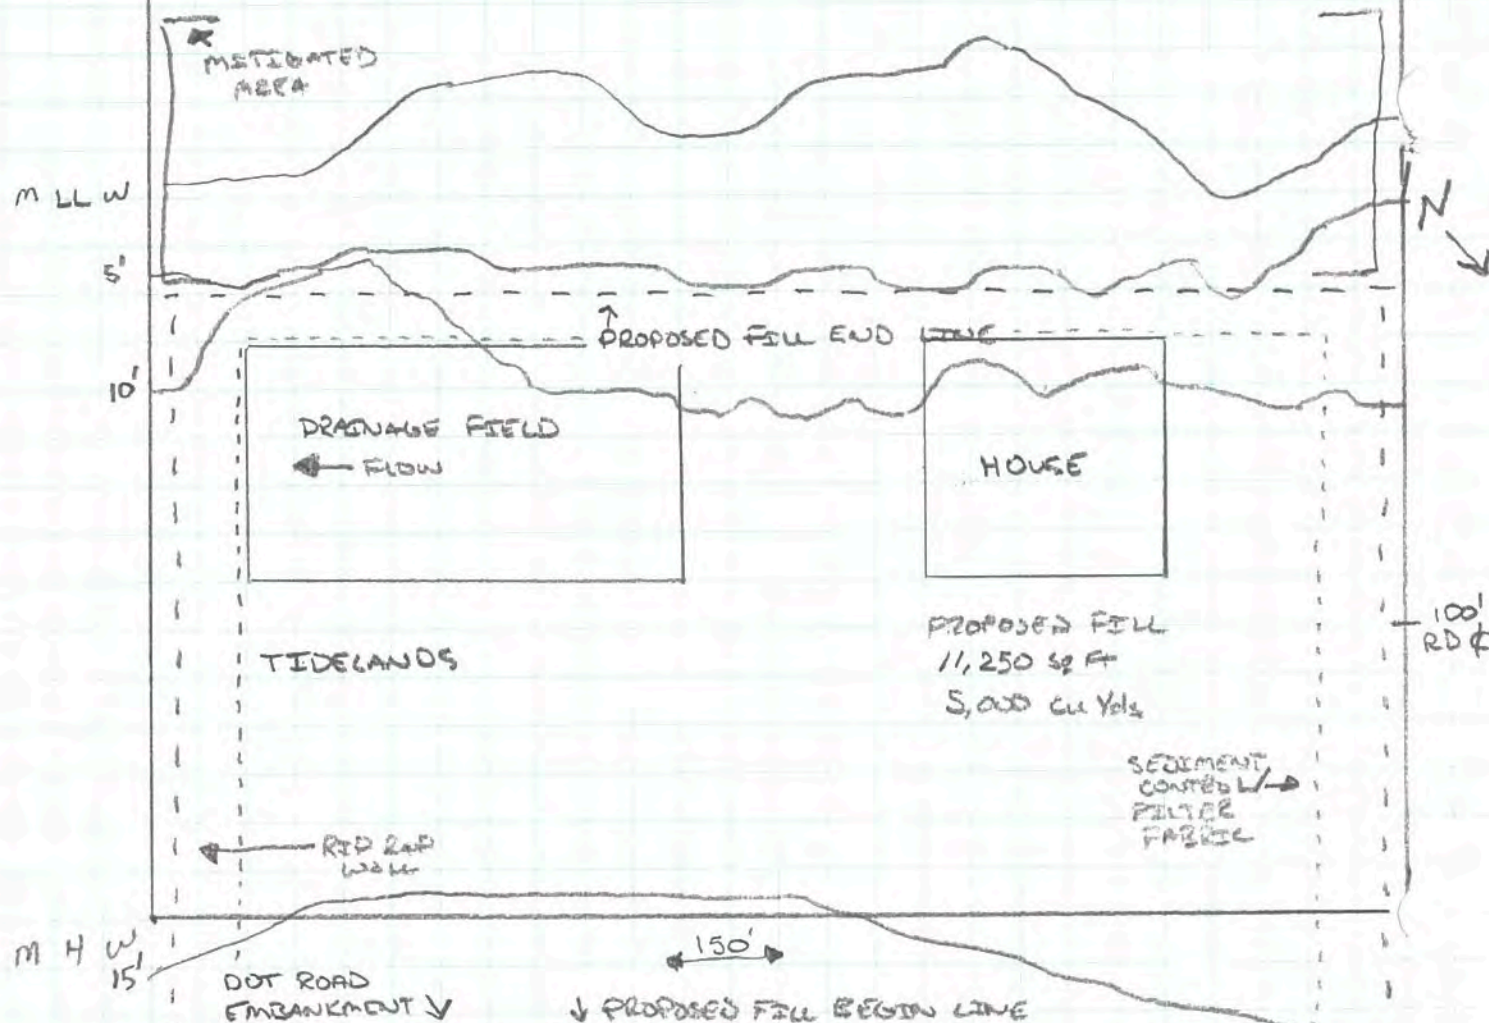 MITIGATED
AREA
M LL W
N
5'
PROPOSED FILL END LINE
10'
DRAINAGE FIELD
FLOW
HOUSE
100'
RD ℄
PROPOSED FILL
11,250 sq Ft
5,000 cu Yds
TIDELANDS
SEDIMENT
CONTROL
FILTER
FABRIC
RIP RAP
WALL
M H W
15'
150'
DOT ROAD
EMBANKMENT
PROPOSED FILL BEGIN LINE